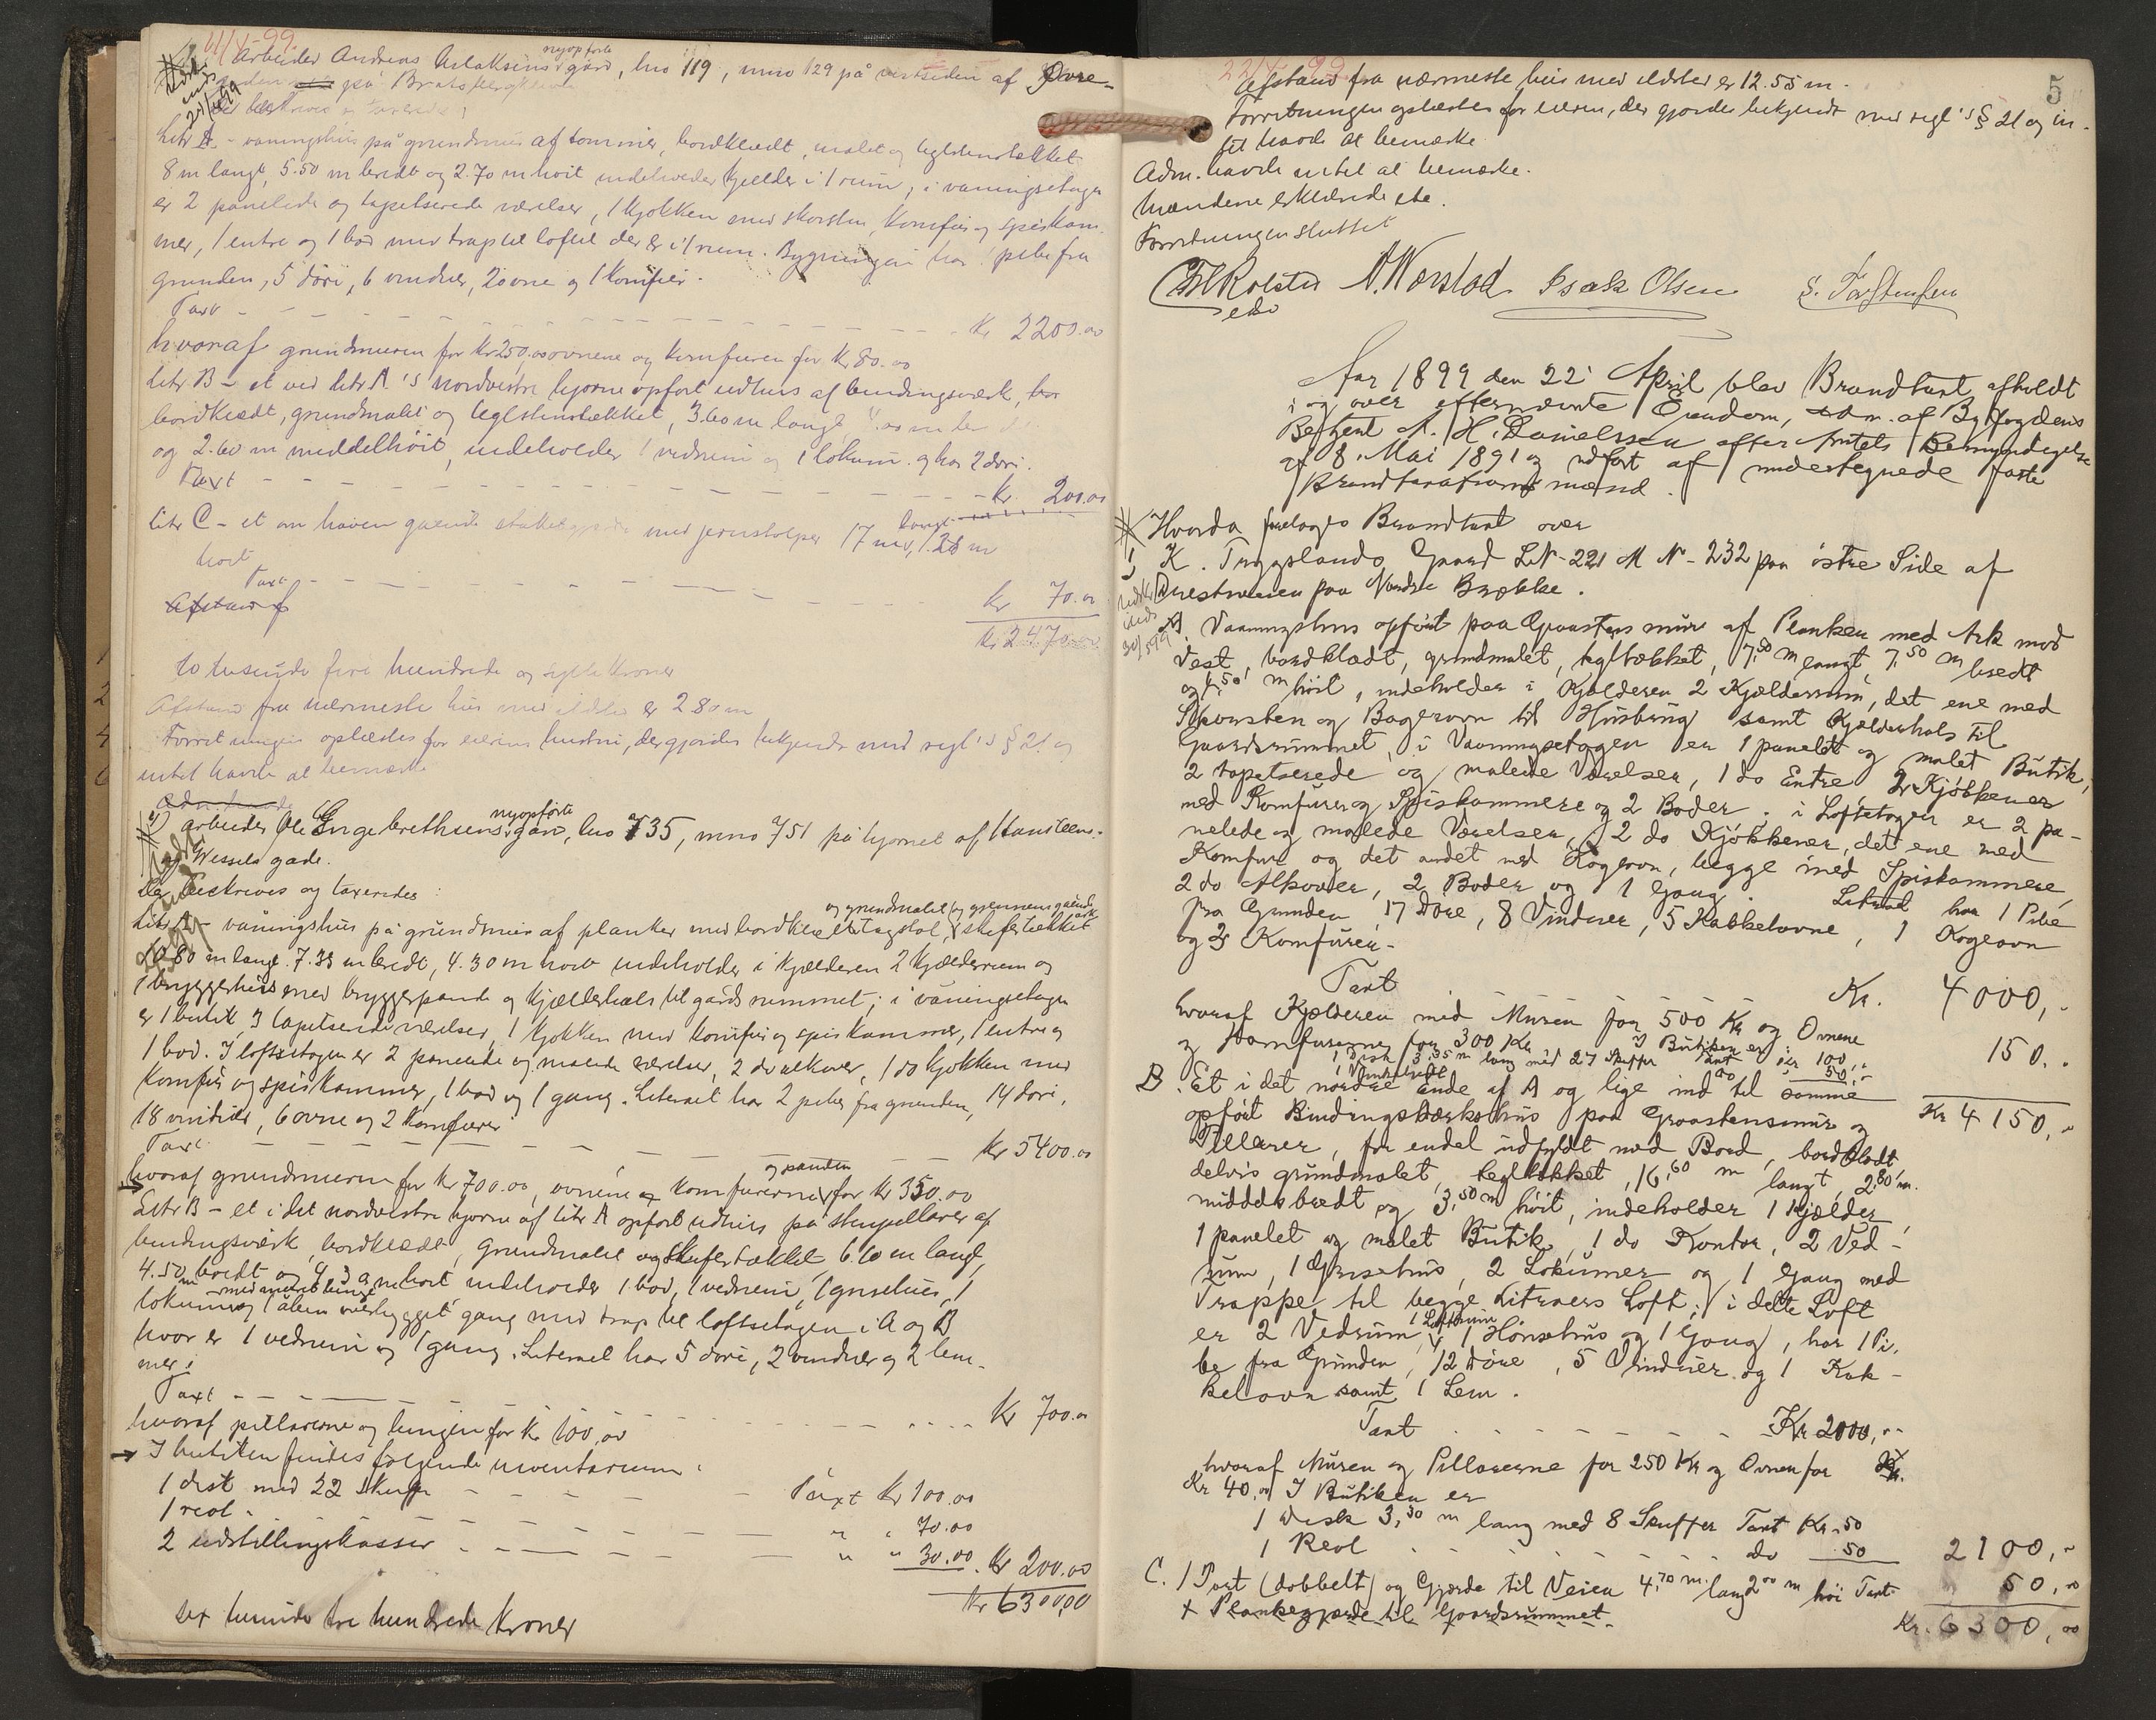 Arbeider Andreas Aslaksens nyopførte gård, lno 119, mno 129 på vestsiden af Øvre-
gaden på Bratsbergkleven
Der beskrives og taxeredes:
Litr A – våningshus på grundmur af tømmer, bordklædt, malet og teglstenstækket
8 m langt, 5.50 m bredt og 2.70 m høit indeholder kjelder i 1 rum, i våningsetagen
er 2 panelede og tapetserede værelser, 1 kjøkken med skorsten, komfur og spiskam-
mer, 1 entre og 1 bod med trap til loftet der er i 1 rum. Bygningen har 1 pibe fra
grunden, 5 døre, 6 vinduer, 2 ovne og 1 komfur.
Taxt - - - Kr 2200.00
hvoraf grundmuren for Kr 250.00 ovnene og komfuren for Kr 80.00
Litr B – et ved litr A's nordvestre hjørne opført udhus af bindingsværk,
bordklædt, grundmalet og teglstenstækket, 3.60 m langt
og 2.60 m middelhøit, indeholder 1 vedrum og 1 lokum og har 2 døre.
Taxt - - - Kr. 200.00
litr C – et om haven gående stakitgjerde med jernstolper 17 m langt, 1.28 m
høit
Taxt - - - Kr 70.00
Afstand f
Kr 2470.00
to tusinde fire hundrede og sytti kroner
Afstand fra nærmeste hus med ildsted er 2.80 m
Forretningen oplæstes for eierens hustru, der gjordes bekjendt med regl's § 21 og
intet havde at bemærke
Adm. havde
2) arbeider Ole Engebrethsens nyopførte gård, lno 735, mno 751 på hjørnet af Hansteens-
og Wessels gade.
Der beskrives og taxeredes:
Litr A – våningshus på grundmur af planker med bordklædt tagstol, og grundmalet og gjennemgående ark skifertækket
10.80 m langt. 7.33 m bredt, 4.30 m høit indeholder i kjælderen 2 kjælderrum og
1 bryggerhus med bryggerpande og kjælderhals til gårdsrummet; i våningsetagen
er 1 butik 3 tapetserede værelser, 1 kjøkken med komfur og spiskammer, 1 entre og
1 bod. I loftsetagen er 2 panelede og malede værelser, 2 do alkover, 1 do kjøkken med
komfur og spiskammer, 1 bod og 1 gang. Literaet har 2 piber fra grunden, 14 døre,
18 vinduer, 6 ovne og 2 komfurer
Taxt - - - Kr 5400.00
hvoraf grundmuren for Kr 700.00, ovnene og komfurerne og panden for Kr 350.00
Litr B – et i det nordvestre hjørne af litr A opført udhus på stenpillarer af
bindingsværk, bordklædt, grundmalet og skifertækket, 6.10 m langt,
4.50 m bredt og 4.3 m høit indeholder 1 bod, 1 vedrum, 1 grisehus, 1
lokum med muret binge og 1 åben overbygget gang med trap til loftsetagen i A og B
hvor er 1 vedrum og 1 gang. Literaet har 5 døre, 2 vinduer og 2 lem-
mer.
Taxt - - - Kr 700.00
hvoraf pillarerne og bingen for Kr 100.00
I butiken findes følgende inventarium:
1 disk med 22 skuffer - - - Taxt Kr 100.00
1 reol - - - " " 70.00
2 udstillingskasser - - - " " 30.00 Kr 200.00
Kr 6300.00
sex tusinde tre hundrede kroner
5
22/4 99
Afstand fra nærmeste hus med ildsted er 12.55 m.
Forretningen oplæstes for eieren, der gjordes bekjendt med regl's § 21 og in-
tet havde at bemærke
Adm. havde intet at bemærke.
Mændene erklærede etc.
Forretningen sluttet
N. Worstad Isak Olsen
Aar 1899 den 22' April blev Brandtaxt afholdt
i og over efternævnte Eiendom, adm. af Byfogdens
Betjent A. H. Danielssen efter Amtets Bemyndigelse
af 8. Mai 1891 og udført af undertegnede faste
Brandtaxationsmænd.
Hvorda foretoges Brandtaxt over
1) K. Tryggslands Gaard L.N – 221 M N – 232 paa østre Side af
Duestien paa Nordre Brække.
A. Vaaningshus opført paa Graastens mur af Planker med Ark mod
Vest, bordklædt, grundmalet, tegltækket, 7,50 m langt 7,50 m bredt
og 4,50 m høit, indeholder i Kjælderen 2 Kjælderrum, det ene med
Skorsten og Bagerovn til Husbrug samt Kjælderhals til
Gaardsrummet, i Vaaningsetagen er 1 panelet og malet Butik,
2 tapetserede og malede Værelser, 1 do Entre, 2 Kjøkkener
med Komfurer og Spiskammere og 2 Boder; i Loftetagen er 2 pa-
nelede og malede Værelser, 2 do Kjøkkener, det ene med
Komfur og det andet med Kogeovn, begge med Spiskammere,
2 do Alkover, 2 Boder og 1 Gang. Literaet har 1 Pibe
fra Grunden, 17 Døre, 8 Vinduer, 5 Kakkelovne, 1 Kogeovn
og 3 Komfurer.
Taxt - - - Kr. 4000,-
hvoraf Kjælderen med Muren for 500 Kr og Ovnene
og Komfurerne for 300 Kr I Butiken er
1 Disk 3,35 m lang med 27 Skuffer Taxt Kr 100,-
do 50,- 150,-
Kr 4150,-
B. Et i det nordre Ende af A og lige ind til samme
opført Bindingsværkshus paa Graastensmur og
Pillarer, for endel udfyldt med Bord, bordklædt
delvis grundmalet, tegltækket, 16,60 m langt, 2,80 m
middels bredt og 3,50 m høit, indeholder 1 Kjælder,
1 panelet og malet Butik, 1 do Kontor, 2 Ved-
rum, 1 Grisehus, 2 Lokumer og 1 Gang med
Trappe til begge Literaers Loft; i dette Loft
er 2 Vedrum, 1 Loftrum, 1 Hønsehus og 1 Gang, har 1 Pi-
be fra Grunden, 12 Døre, 5 Vinduer og 1 Kak-
kelovn samt 1 Lem.
Taxt - - - Kr 2000,-
hvoraf Muren og Pillarerne for 250 Kr og Ovnen for
Kr 40.00 I Butiken er
1 Disk 3,30 m lang med 8 Skuffer Taxt Kr. 50
1 Reol - - - do 50 2100,-
C. 1 Port (dobbelt) og Gjærde til Veien 4,70 m lang 2,00 m høi Taxt 50,00
+ Plankegjærde til Gaardsrummet.
Kr. 6300,00